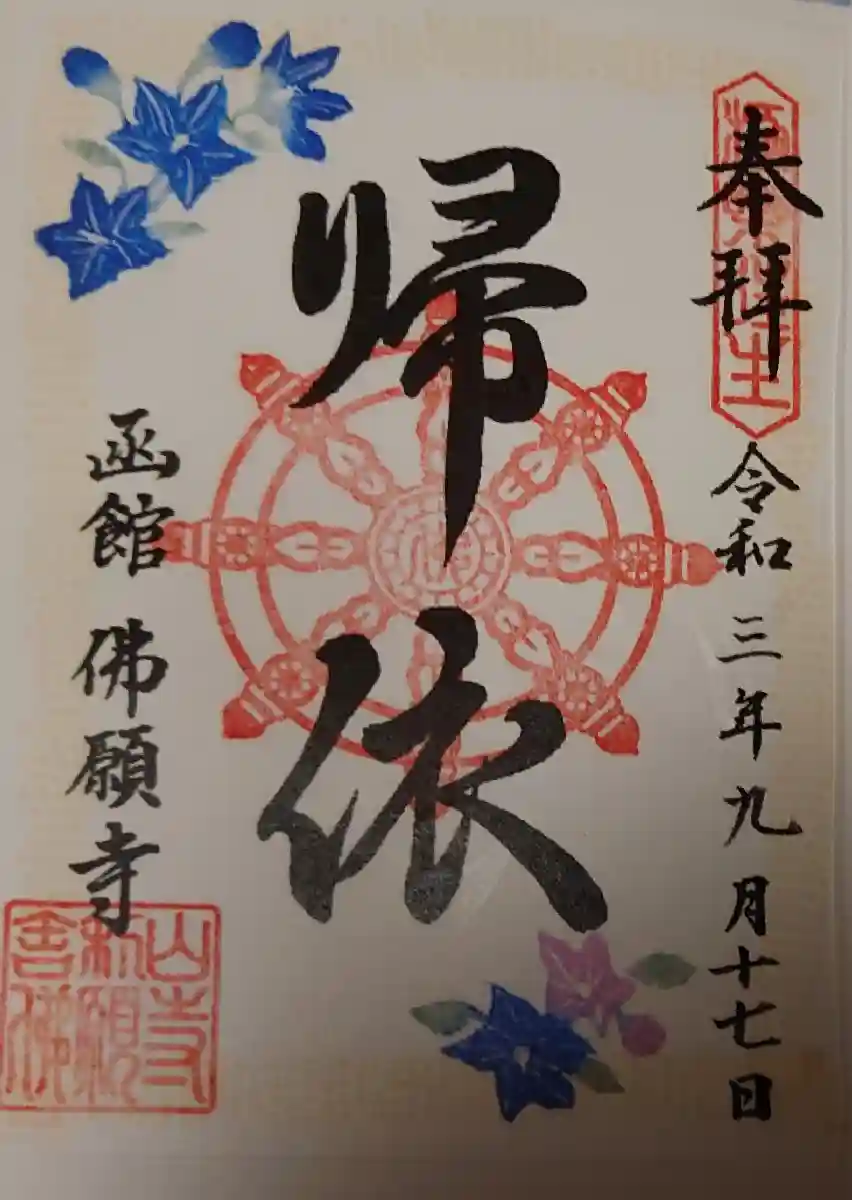 奉拝
令和三年九月十七日
帰依
函館 佛願寺